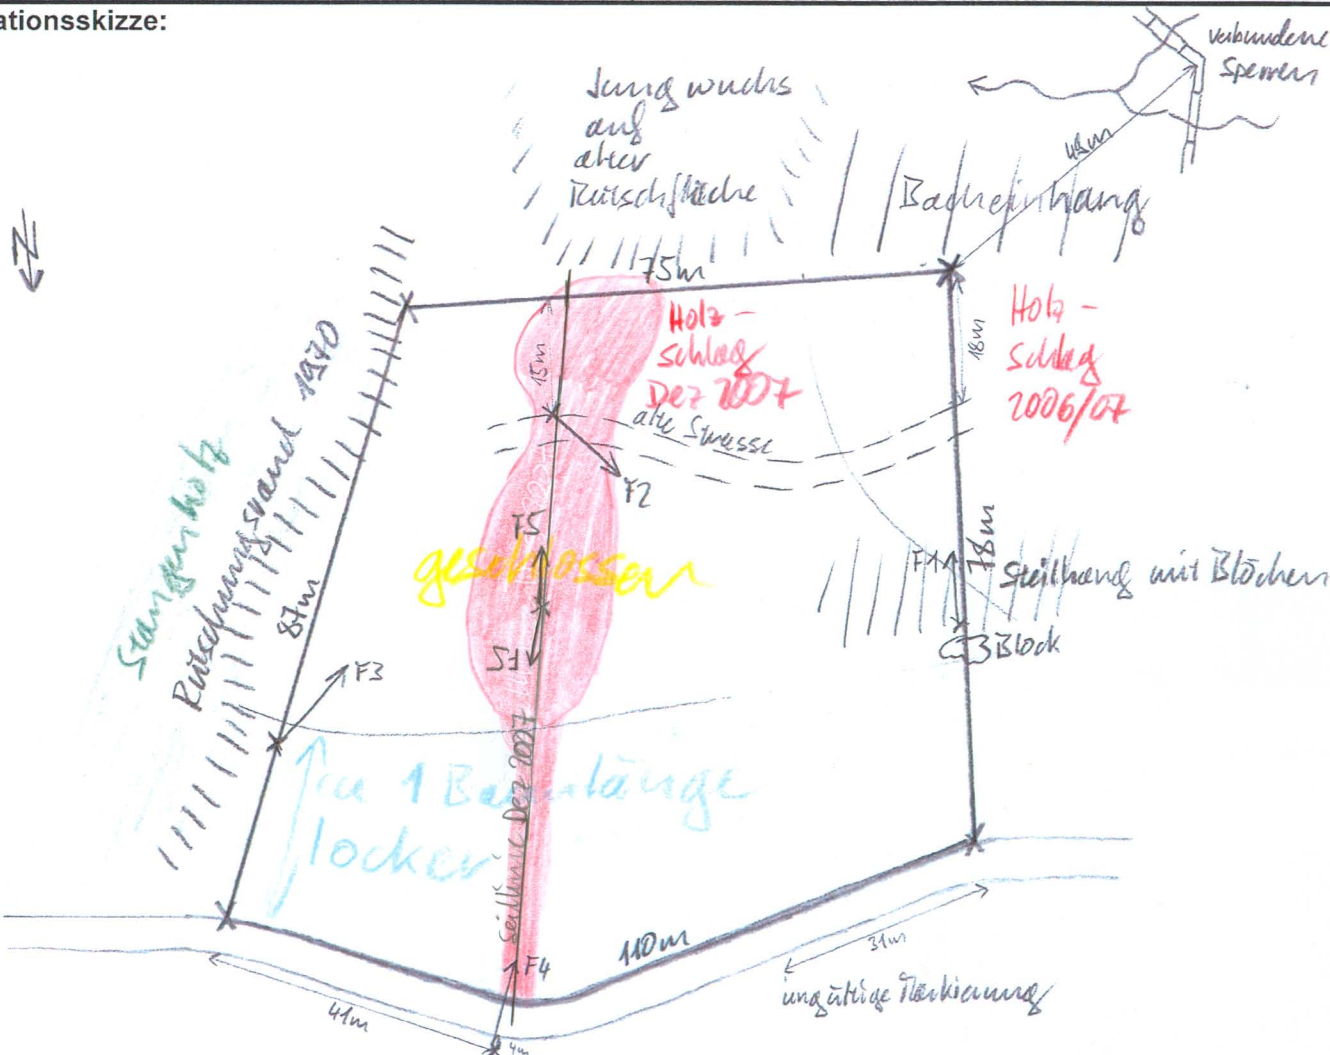 ationsskizze:
verbundene
Sperren
Jungwuchs
auf
alter
Rutschfläche
49m
Bacheinhang
N
75m
Holz-
schlag
Dez 2007
Holz-
schlag
2006/07
15m
18m
alte Strasse
F2
Stangenholz
Rutschungsrand 1970
87m
F5
geschlossen
F5
F1
78m
Steilhang mit Blöcken
Block
F3
ca 1 Baumlänge
locker
Seillinie Dez 2007
110m
F4
41m
4m
31m
ungültige Markierung